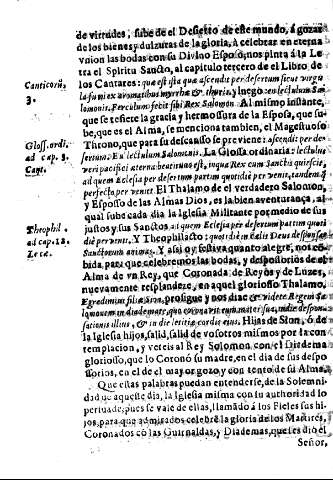 de virtudes, sube de el Desierto de este mundo, á gozar
de los bienes y dulzuras de la gloria, à celebrar en eterna
vnion las bodas con su Divino Esposo, nos pinta à la Le
tra el Spiritu Sancto, al capitulo tercero de el Libro de
Canticorũ,
3.
los Cantares: quæ est ista quæ ascendit per desertum sicut virgu
la fumi ex aromatibus myrrhæ & thuris, y luego: en lectulum Sa
lomonis. Ferculum fecit sibi Rex Salomon. Al mismo instante,
que se refiere la gracia y hermosura de la Esposa, que su-
be, que es el Alma, se menciona tambien, el Magestuoso
Throno, que para su descanso se previene: ascendit per de-
Gloss. ordi.
ad cap. 3.
Cant.
sertum. En lectulum Salomonis. La Glossa ordinaria: lectulus
veri pacifici æterna beatitudo est, in qua Rex cum Sanctis quiescit,
ad quem Eclesia per desertum partim quotidiè per venit, tandem
perfecta per venit. El Thalamo de el verdadero Salomon,
y Esposso de las Almas Dios, es la bien aventurança, al
qual sube cada dia la Iglesia Militante por medio de sus
justos y sus Sanctos ad quem Eclesia per desertum partim quoti
Theophil.
ad cap. 12.
Lucæ.
diè per venit. Y Theophilacto: quotidiè in Cælis Deus desponsat
Sanctorum animas. Y assi oy festiva quanto alegre, nos cõ
bida para que celebremos las bodas, y desposorios de el
Alma de vn Rey, que Coronada de Rayos y de Luzes,
nuevamente resplandece, en aquel glorioso Thalamo.
Egredimini filiæ Sion, prosigue y nos dize & videte Regem Sa
lomonem in diademate, quo coronavit eum mater sua, in die despon-
sationis illius, & in die letitiæ cordis eius. Hijas de Sion, ó de
la Iglesia hijos, salid, salid de vosotros mismos por la con
templacion, y veteis al Rey Salomon con el Diadema
glorioso, que lo Coronò su madre, en el dia de sus despo
ssorios, en el de el mayor gozo, y contento de su Alma.
Que estas palabras puedan entenderse, de la Solemni
dad de aqueste dia, la Iglesia misma con su authoridad lo
persuade, pues se vale de ellas, llamãdo à los Fieles sus hi
jos, para que admirados celebrẽ la gloria de los Martires,
Coronados cõ las Guirnaldas, y Diademas, que les dio el
Señor,